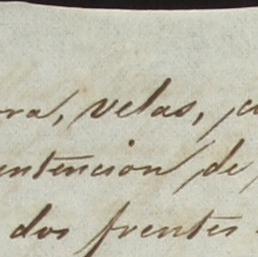 ra, velas,
intencion de
dos frentes